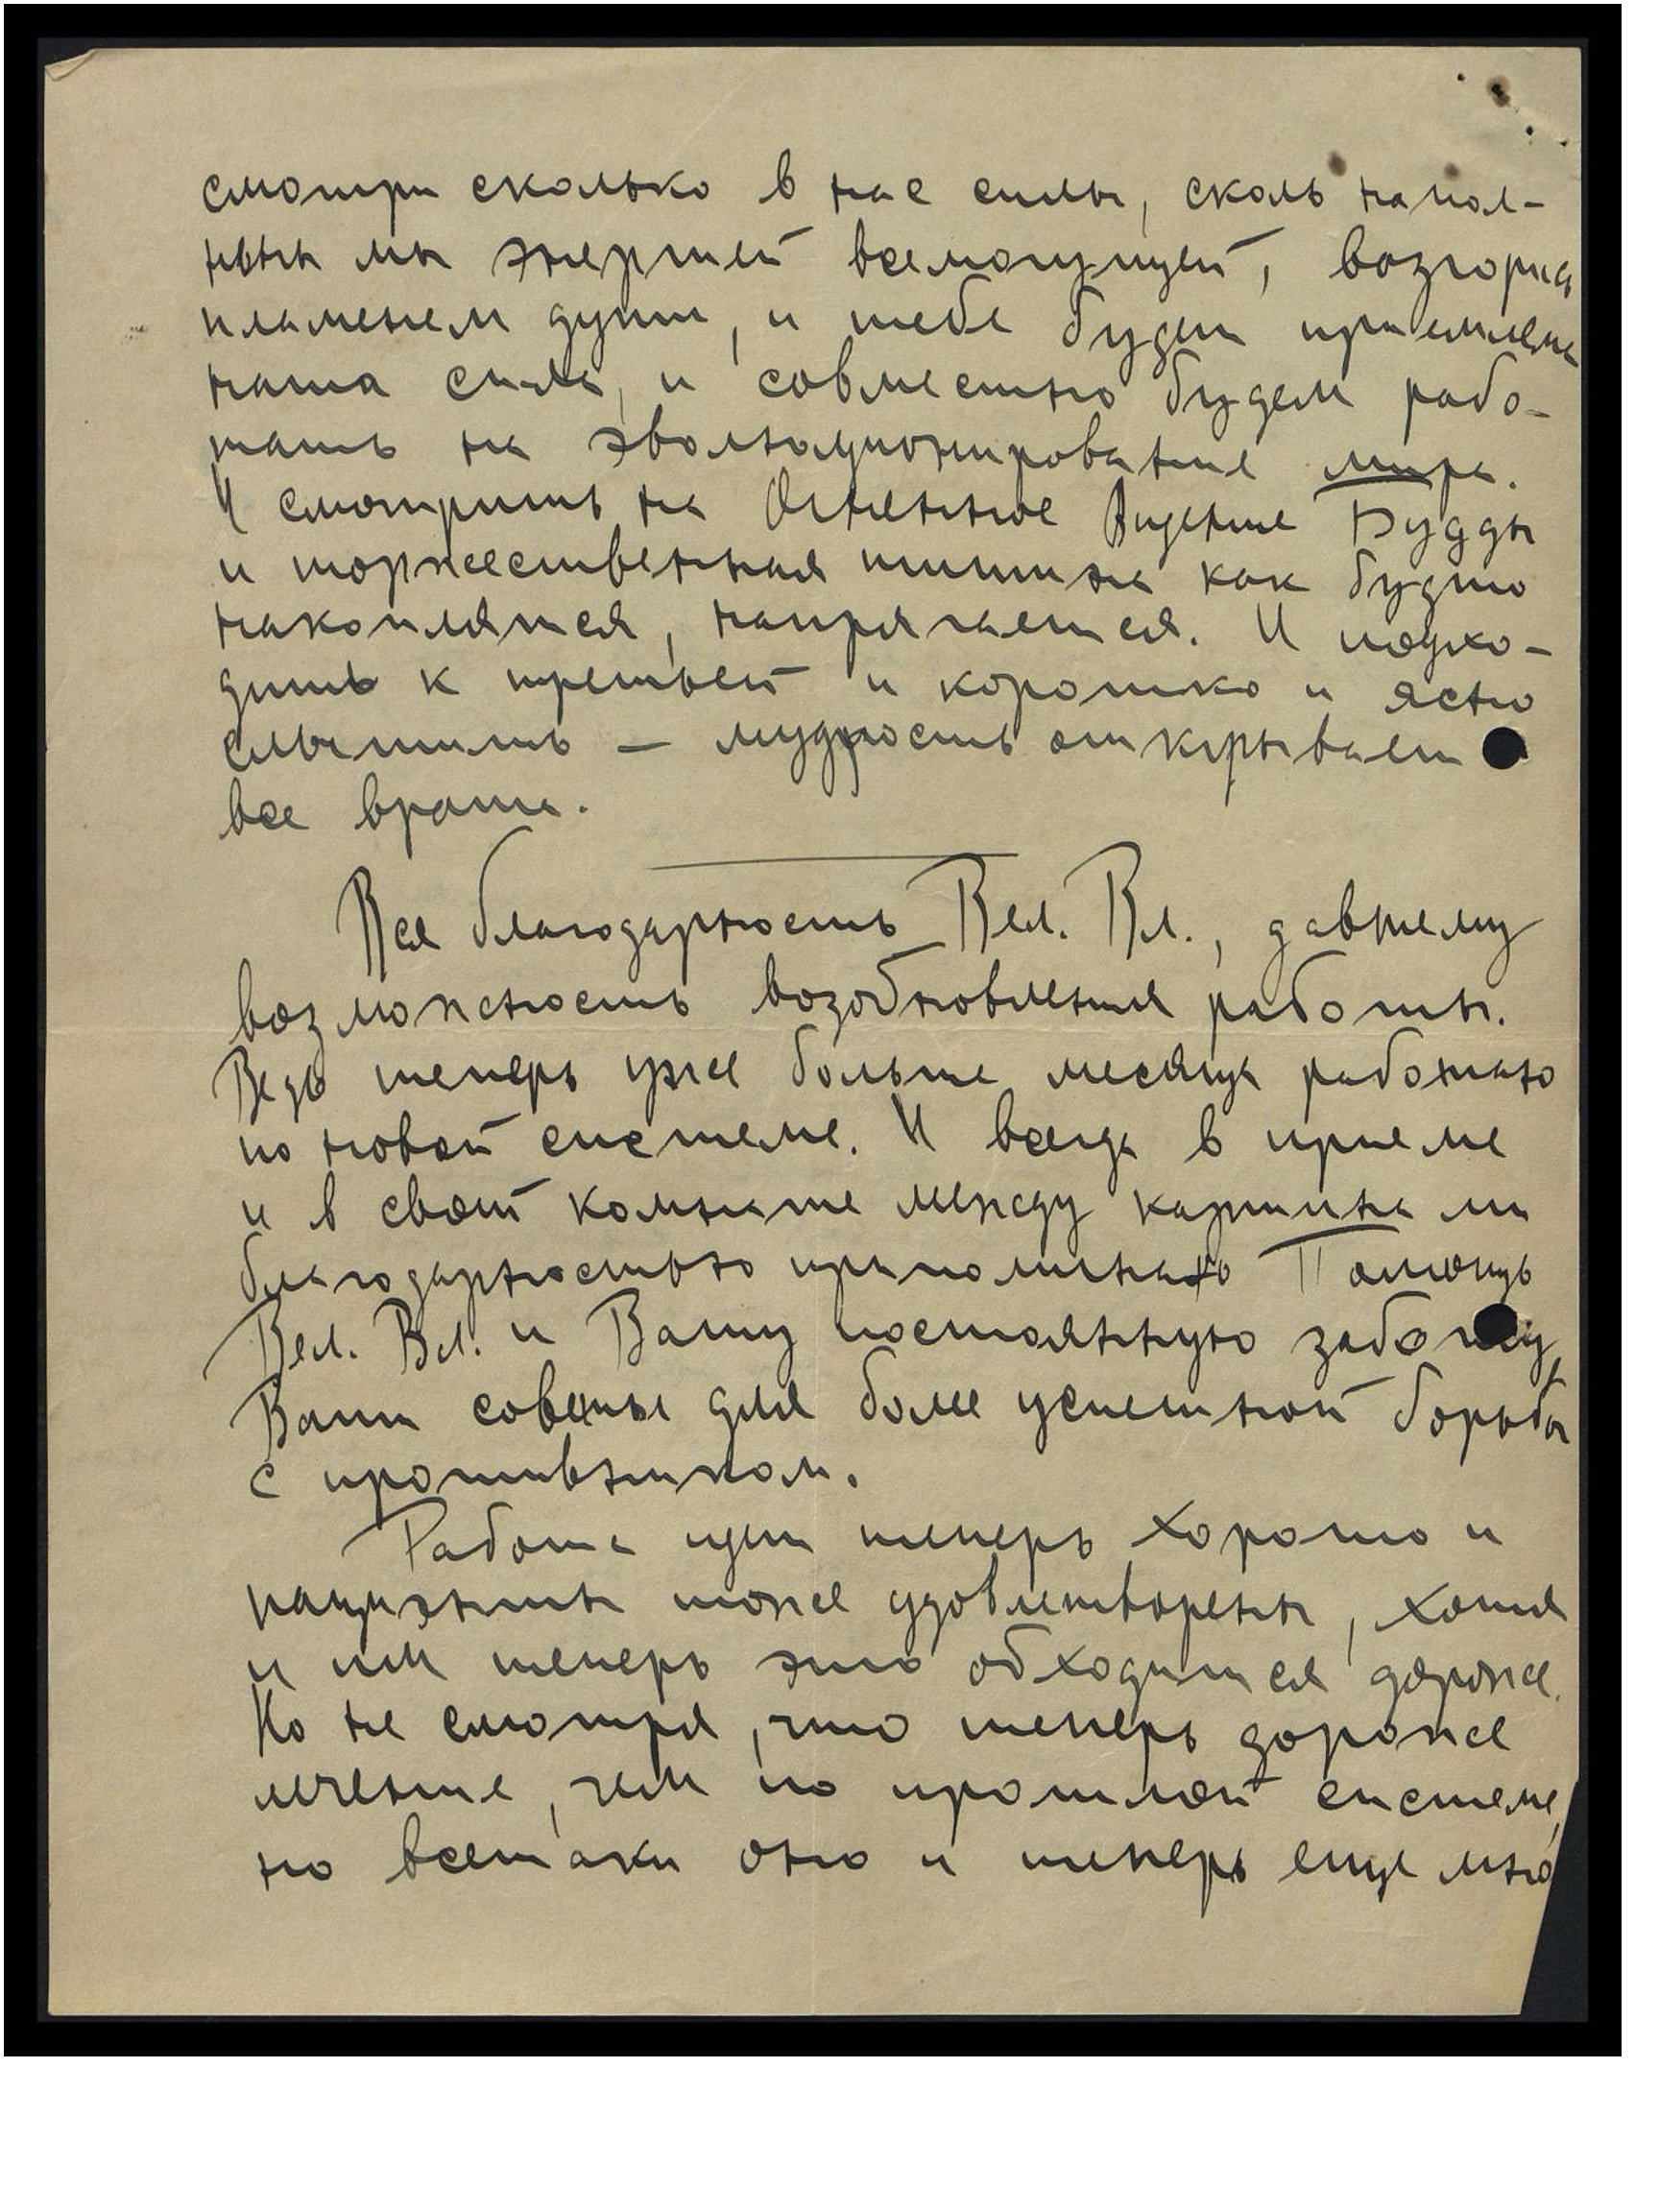 смотри сколько в нас силы, сколь напол-
нены мы энергией всемогущей, возгорись
пламенем души, и тебе будет приемлема
наша сила, и совместно будем рабо-
тать на эволюционирование мира.
И смотришь на Огненное Видение Будды
и торжественная тишина как будто
накопляется, напрягается. И подхо-
дишь к третьей и коротко и ясно
слышишь — мудрость открывает
все врата.
Вся благодарность Вел. Вл., давшему
возможность возобновления работы.
Ведь теперь уже больше месяца работаю
по новой системе. И всегда в приеме
и в своей комнате между картинами
благодарностью припоминаю Помощь
Вел. Вл. и Вашу постоянную заботу,
Ваши советы для более успешной борьбы
с противником.
Работа идет теперь хорошо и
пациэнты тоже удовлетворены, хотя
и им теперь это обходится дороже.
Но не смотря, что теперь дороже
лечение, чем по прошлой системе,
но всетаки оно и теперь еще мно